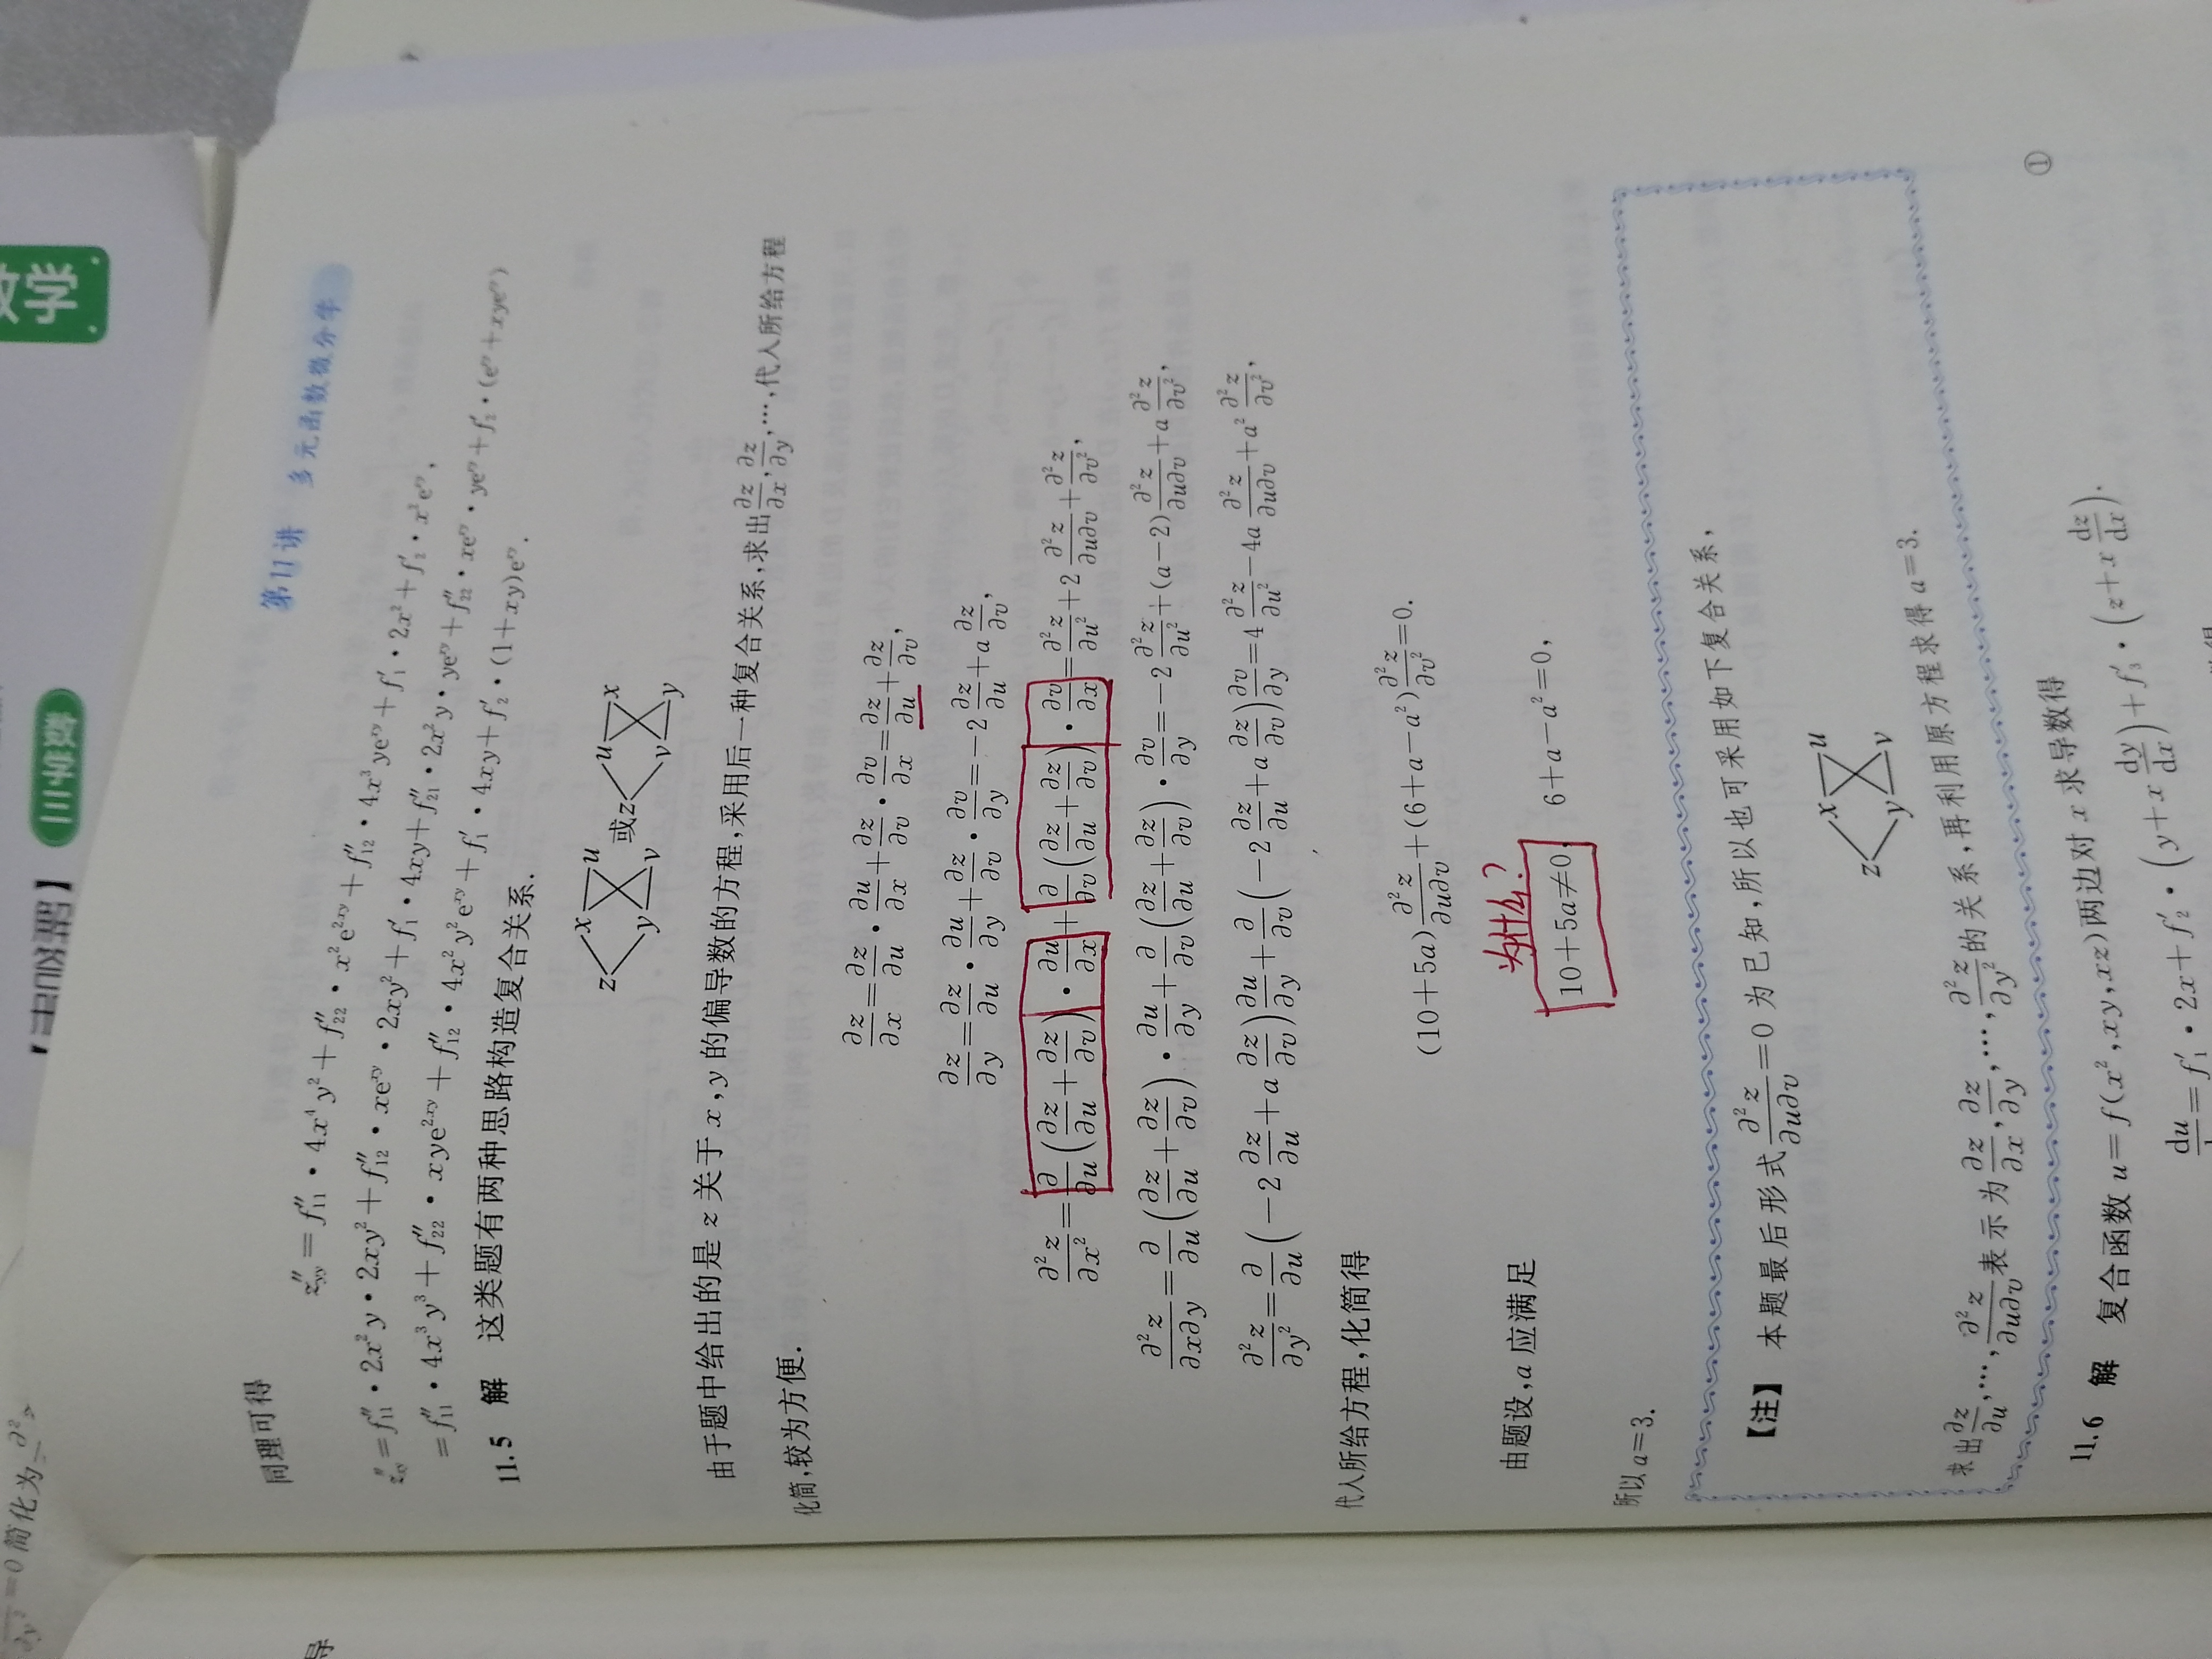 数学
三十六讲
【配习题】
=0简化为
得
第11讲 多元函数微分学
同理可得
z''_{yy}=f''_{11}·4x^4y^2+f''_{22}·x^2e^{2xy}+f''_{12}·4x^3ye^{xy}+f'_1·2x^2+f'_2·x^2e^{xy},
z''_{xy}=f''_{11}·2x^2y·2xy^2+f''_{12}·xe^{xy}·2xy^2+f'_1·4xy+f''_{21}·2x^2y·ye^{xy}+f''_{22}·xe^{xy}·ye^{xy}+f'_2·(e^{xy}+xye^{xy})
=f''_{11}·4x^3y^3+f''_{22}·xye^{2xy}+f''_{12}·4x^2y^2e^{xy}+f'_1·4xy+f'_2·(1+xy)e^{xy}.
11.5 解 这类题有两种思路构造复合关系.
z x y u v 或 z u v x y
由于题中给出的是z关于x,y的偏导数的方程,采用后一种复合关系,求出∂z/∂x,∂z/∂y,…,代入所给方程
化简,较为方便.
∂z/∂x=∂z/∂u·∂u/∂x+∂z/∂v·∂v/∂x=∂z/∂u+∂z/∂v,
∂z/∂y=∂z/∂u·∂u/∂y+∂z/∂v·∂v/∂y=-2∂z/∂u+a∂z/∂v,
∂²z/∂x²=∂/∂u(∂z/∂u+∂z/∂v)·∂u/∂x+∂/∂v(∂z/∂u+∂z/∂v)·∂v/∂x=∂²z/∂u²+2∂²z/∂u∂v+∂²z/∂v²,
∂²z/∂x∂y=∂/∂u(∂z/∂u+∂z/∂v)·∂u/∂y+∂/∂v(∂z/∂u+∂z/∂v)·∂v/∂y=-2∂²z/∂u²+(a-2)∂²z/∂u∂v+a∂²z/∂v²,
∂²z/∂y²=∂/∂u(-2∂z/∂u+a∂z/∂v)∂u/∂y+∂/∂v(-2∂z/∂u+a∂z/∂v)∂v/∂y=4∂²z/∂u²-4a∂²z/∂u∂v+a²∂²z/∂v²,
代入所给方程,化简得
(10+5a)∂²z/∂u∂v+(6+a-a²)∂²z/∂v²=0.
为什么?
由题设,a应满足
10+5a≠0, 6+a-a²=0,
所以a=3.
【注】 本题最后形式∂²z/∂u∂v=0为已知,所以也可采用如下复合关系,
z x y u v
求出∂z/∂u,…,∂²z/∂u∂v表示为∂z/∂x,∂z/∂y,…,∂²z/∂y²的关系,再利用原方程求得a=3.
11.6 解 复合函数u=f(x²,xy,xz)两边对x求导数得
du/dx=f'_1·2x+f'_2·(y+x dy/dx)+f'_3·(z+x dz/dx). ①